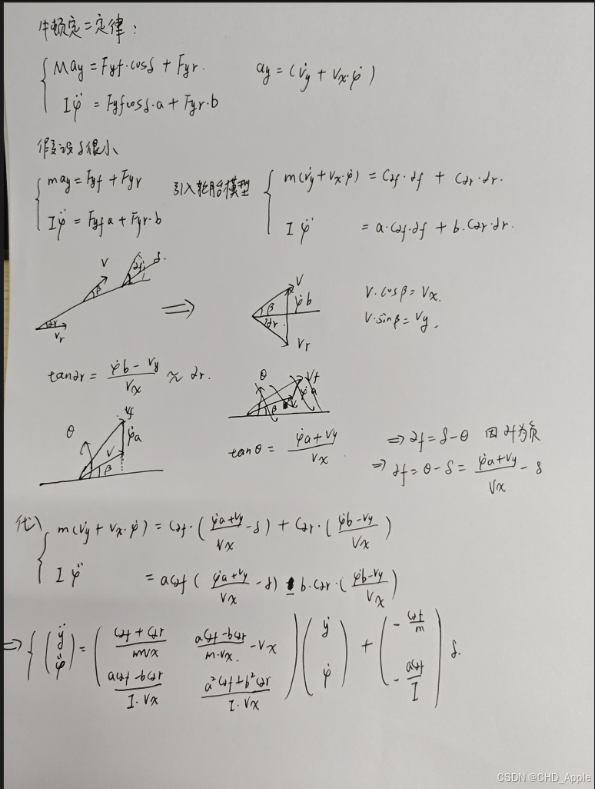 牛顿第二定律:
may = Fyf·cosδ + Fyr. ay = (v̇y + vx·φ̇)
Iφ̈ = Fyfcosδ·a + Fyr·b
假设δ很小
may = Fyf + Fyr 引入轮胎模型 m(v̇y + vx·φ̇) = Cαf·αf + Cαr·αr.
Iφ̈ = Fyf a + Fyr·b Iφ̈ = a·Cαf·αf + b·Cαr·αr.
V β αf δ
αr Vr
⇒
V β φ̇b αr Vr
V·cosβ = Vx.
V·sinβ = Vy.
tanαr = (φ̇b − Vy)/Vx ≈ αr.
θ Vf V β φ̇a
θ Vf φ̇a V β
tanθ = (φ̇a + Vy)/Vx
⇒ αf = δ − θ 因αf为负
⇒ αf = θ − δ = (φ̇a + Vy)/Vx − δ
代入 m(v̇y + vx·φ̇) = Cαf·((φ̇a + vy)/Vx − δ) + Cαr·((φ̇b − vy)/Vx)
Iφ̈ = aCαf((φ̇a + vy)/Vx − δ) b·Cαr·((φ̇b − vy)/Vx)
⇒ { (ÿ φ̈) = ((Cαf + Cαr)/(mVx) (aCαf − bCαr)/(m·Vx) − Vx
(aCαf − bCαr)/(I·Vx) (a²Cαf + b²Cαr)/(I·Vx)) (ẏ φ̇) + (−Cαf/m −aCαf/I) δ.
CSDN @CHD_Apple